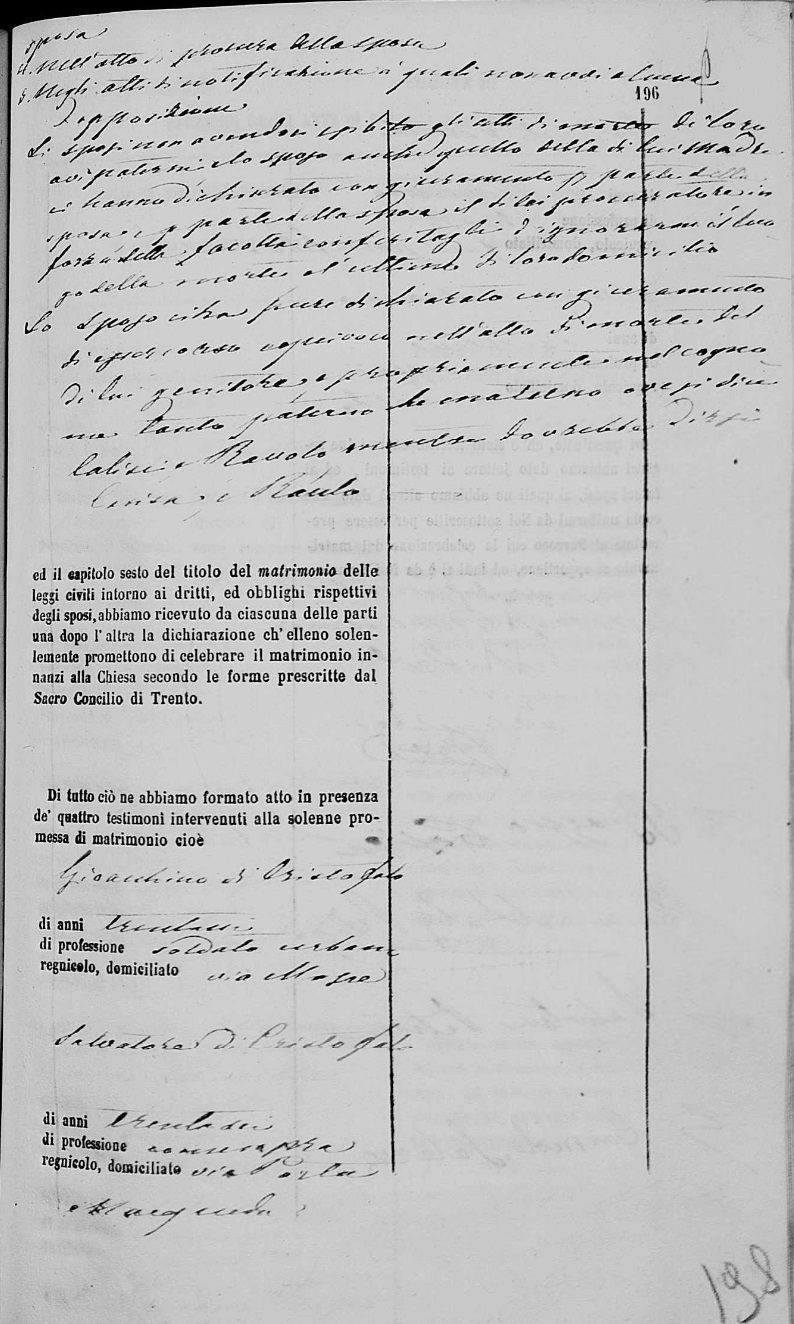 sposa
4. Nell'atto di procura della sposa
5. Negli atti di notificazione a' quali non avvi alcuna
196
opposizione
Li sposi non avendosi esibito gli atti di morte di loro
avi paterni e lo sposo anche quello della di lui madre
hanno dichiarato con giuramento parte dello
sposo e parte della sposa il di lei procuratore in
forza della facoltà conferitagli d'ignorarne il luo
go della morte e l'ultimo di loro domicilio
Lo sposo ha pure dichiarato con giuramento
di esser corso equivoco nell'atto di morte del
di lui genitore e propriamente nel cogno
me tanto paterno che materno ove si dice
e mentre dovrebbe dirsi
e
ed il capitolo sesto del titolo del matrimonio delle
leggi civili intorno ai dritti, ed obblighi rispettivi
degli sposi, abbiamo ricevuto da ciascuna delle parti
una dopo l'altra la dichiarazione ch'elleno solen-
lemente promettono di celebrare il matrimonio in-
nanzi alla Chiesa secondo le forme prescritte dal
Sacro Concilio di Trento.
Di tutto ciò ne abbiamo formato atto in presenza
de' quattro testimoni intervenuti alla solenne pro-
messa di matrimonio cioè
Gioacchino di Cristofalo
di anni
di professione soldato urbano
regnicolo, domiciliato via
Salvatore di Cristofalo
di anni trentasei
di professione
regnicolo, domiciliato via Porta
Macqueda
198